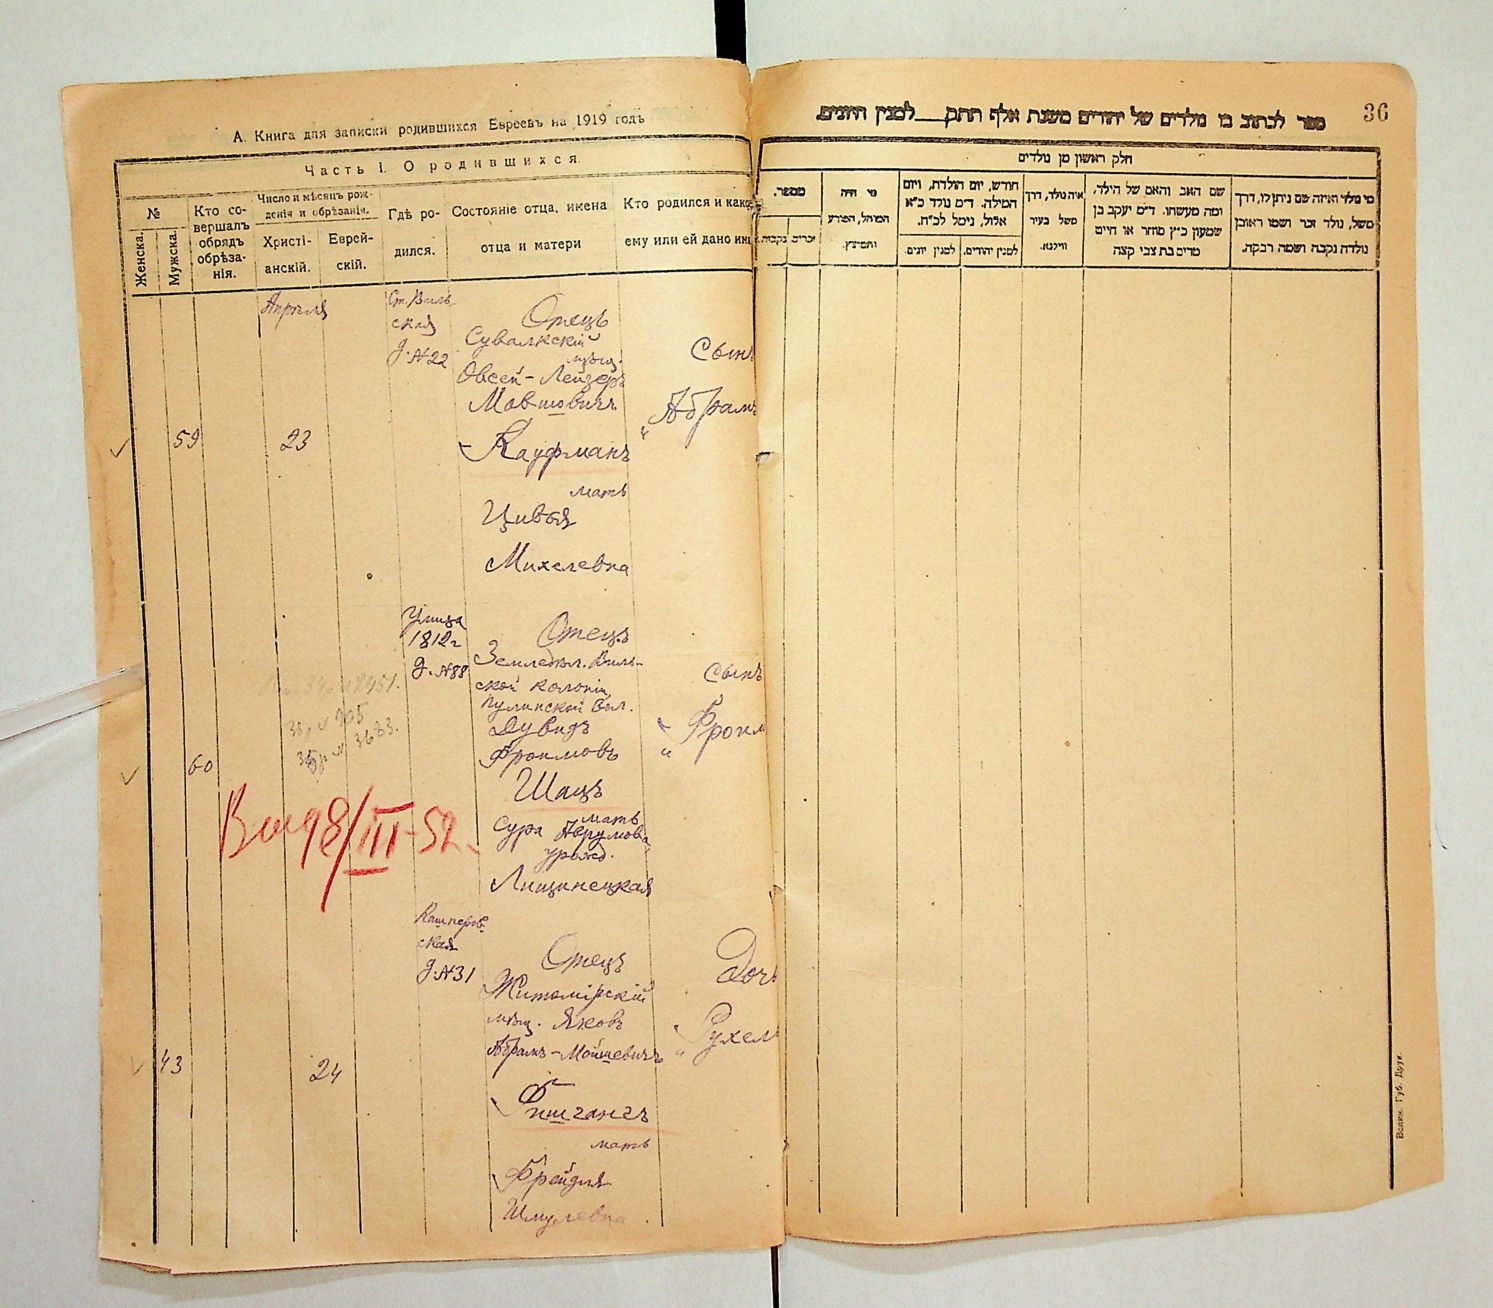 А. Книга для записки родившихся Евреевъ на 1919 годъ
Часть I. О родившихся
№
Женска.
Мужска.
Кто со-
вершалъ
обрядъ
обрѣза-
нія.
Число и мѣсяцъ рож-
денія и обрѣзанія.
Христі-
анскій.
Еврей-
скій.
Гдѣ ро-
дился.
Состояніе отца, имена
отца и матери
Кто родился и како
ему или ей дано им
Апрѣля
Ст. Виль-
ская
д. №22
Отецъ
Сувалкскій
мѣщ.
Овсей-Лейзеръ
Мовшовичъ
Кауфманъ
мать
Цивья
Михелевна
Сынъ
"Абрамъ
59
23
Улица
1812 г
д. №88
Отецъ
Земледѣл. Виль-
ской колоніи
Пулинской вол.
Дувидъ
Фроимовъ
Шацъ
мать
Сура Аврумова
урожд.
Лищинецкая
Сынъ
"Фроим
60
98/III-52
Кашперов-
ская
д. №31
Отецъ
Житомірскій
мѣщ. Яковъ
Абрамъ-Мойшевичъ
Фишгангъ
мать
Фрейдля
Шмулевна
Дочь
"Рухел
43
24
ספר לכתוב בו נולדים של יהודים משנת אלף תתק___למנין היונים.
36
חלק ראשון מן נולדים
מספר.
זכרים
נקבות.
מי היה
המוהל, הפורע
והמוצץ.
חודש, יום הולדת, ויום
המילה. ד״מ נולד כ״א
אלול, נימל לכ״ח.
למנין יונים.
למנין יהודים.
איה נולד, דרך
משל בעיר
ווילנא.
שם האב והאם של הילד,
ומה מעשהו. ד״מ יעקב בן
שמעון כ״ץ סוחר או חיים
מרים בת צבי קצה
מי נולד ואיזה שם ניתן לו, דרך
משל, נולד זכר ושמו ראובן
נולדה נקבה ושמה רבקה.
Волин. Губ. Друк.